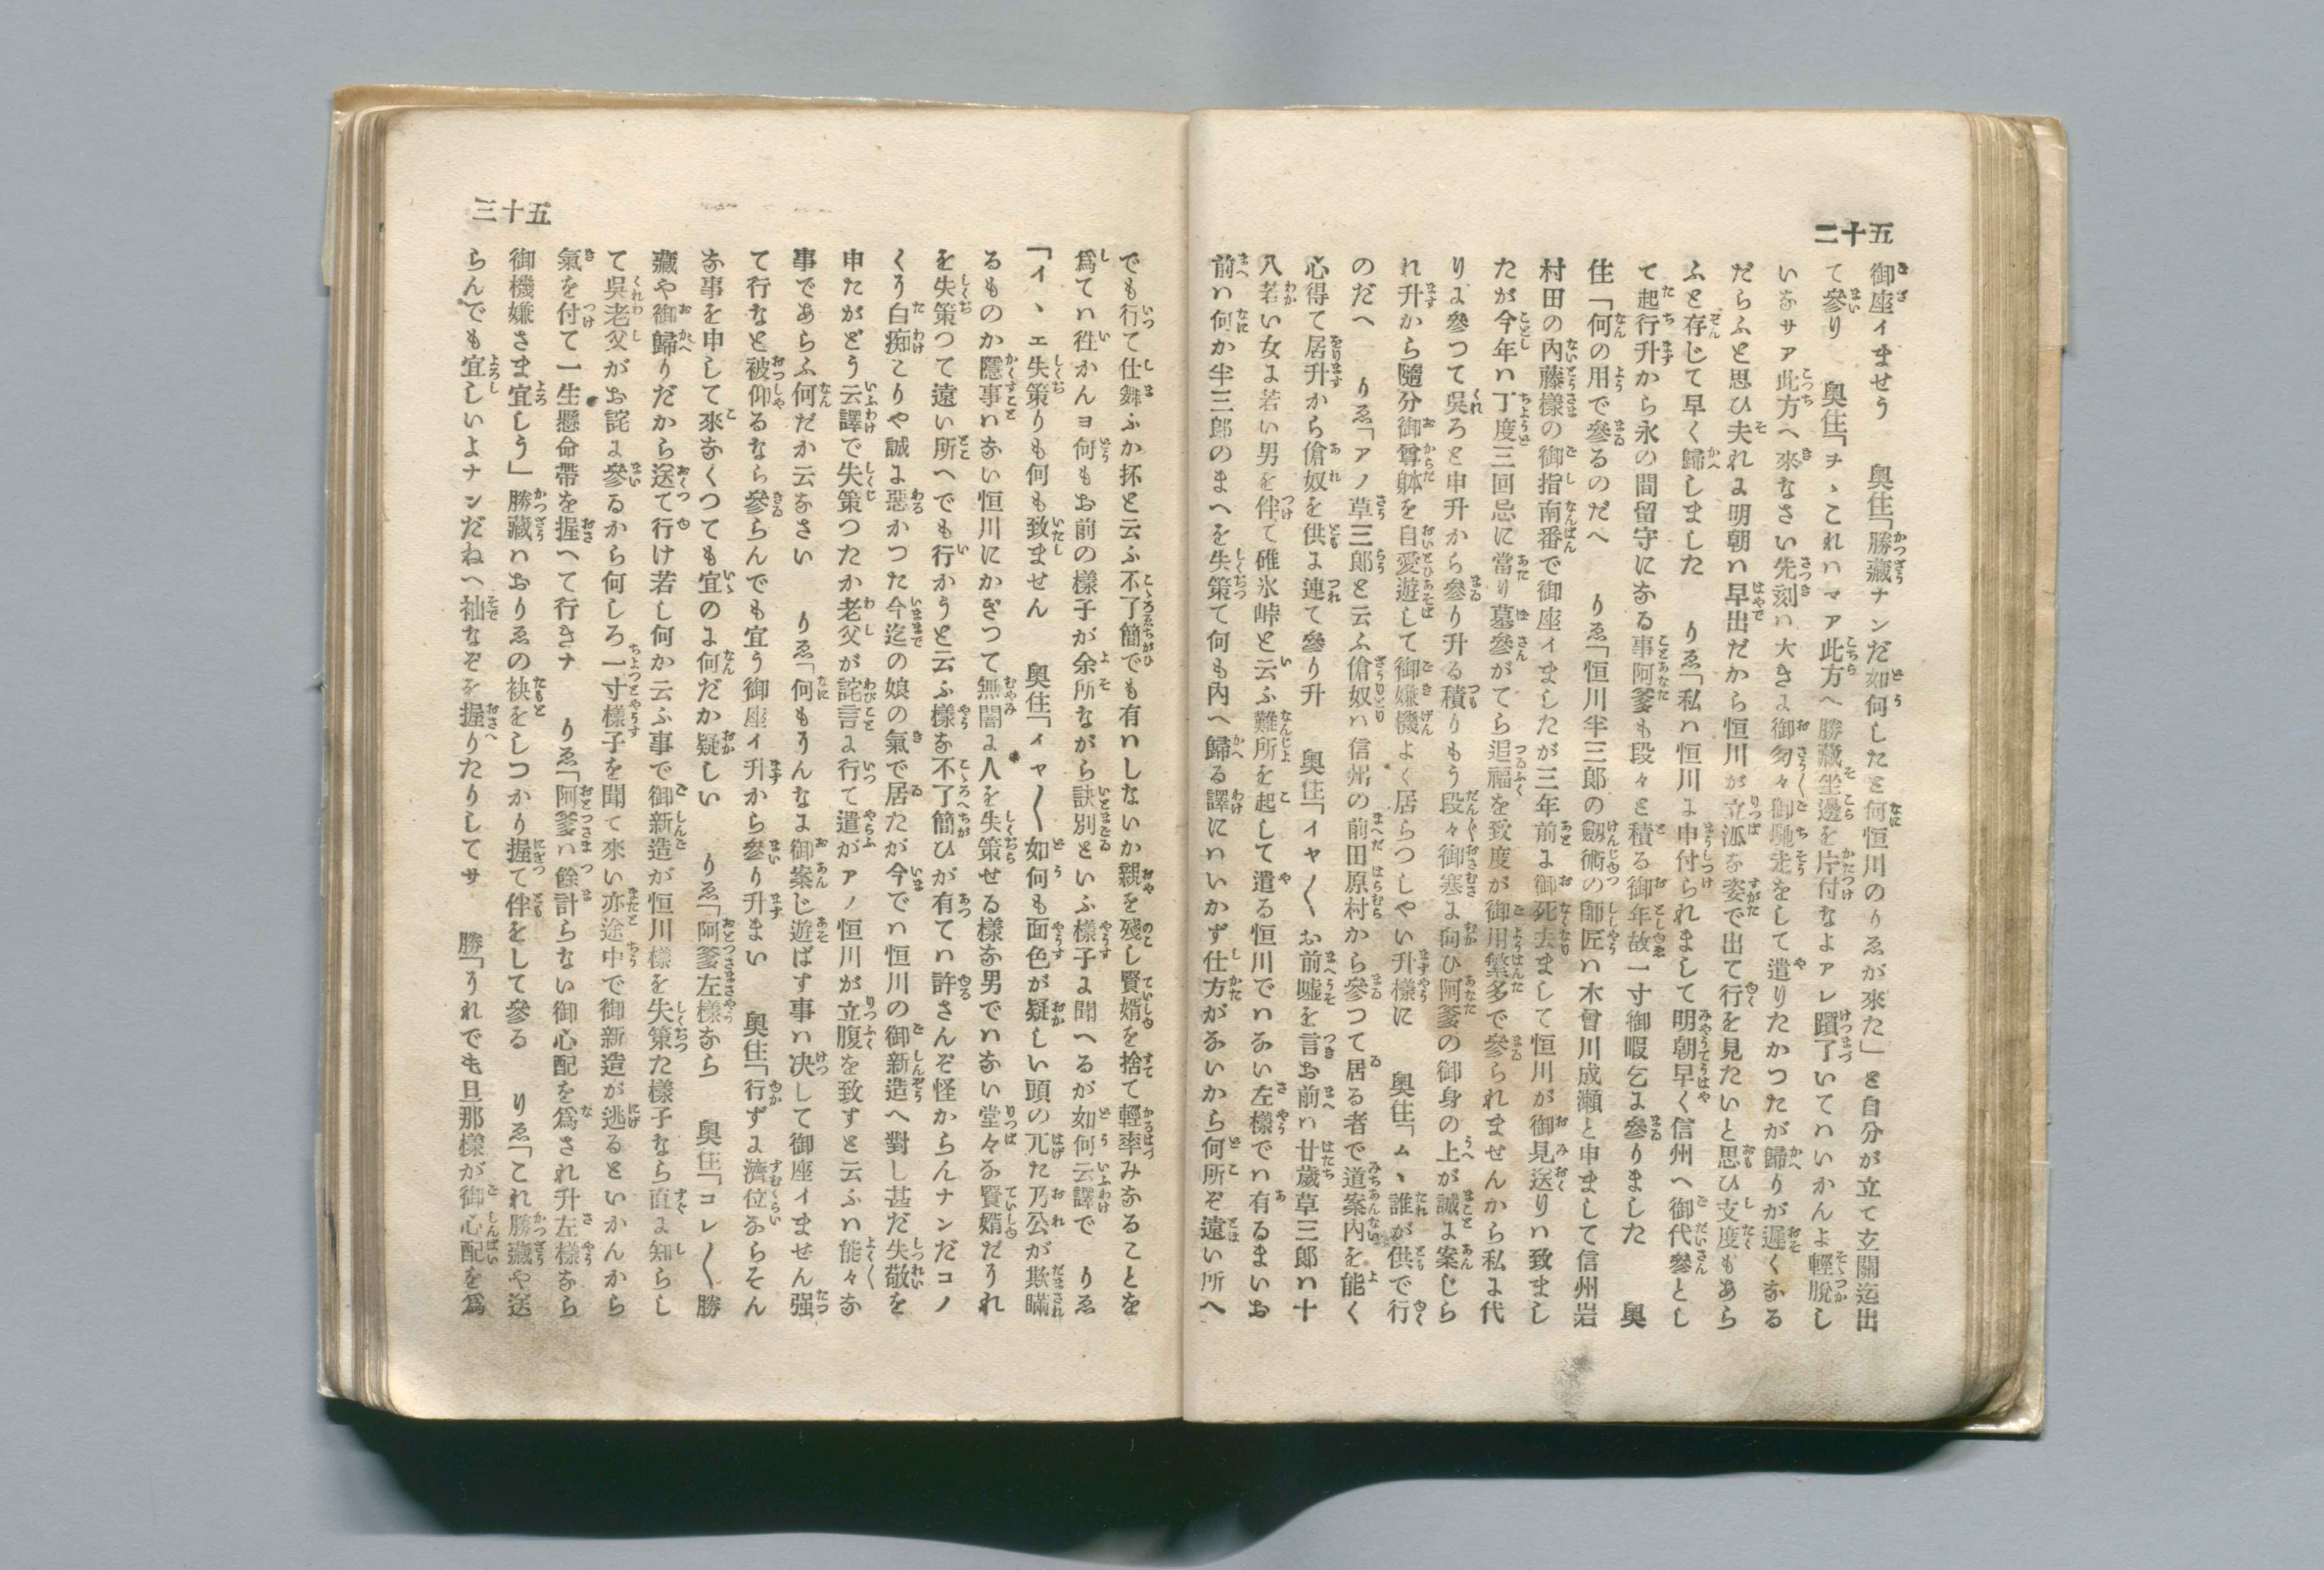 二十五
御座イませう　奥住「勝藏ナンだ如何したと何恒川のりゑが來た」と自分が立て玄關迄出
て參り　奥住「ヲヽこれハマア此方へ勝藏坐邊を片付なよアレ躓了いてハいかんよ輕脫し
いなサア此方へ來なさい先刻ハ大きよ御匆々御馳走をして遣りたかつたが歸りが遲くなる
だらふと思ひ夫れよ明朝ハ早出だから恒川が立派な姿で出て行を見たいと思ひ支度もあら
ふと存じて早く歸しました　りゑ「私ハ恒川よ申付られまして明朝早く信州へ御代參とし
て起行升から永の間留守になる事阿爹も段々と積る御年故一寸御暇乞よ參りました　奥
住「何の用で參るのだへ　りゑ「恒川半三郎の劔術の師匠ハ木曾川成瀬と申まして信州岩
村田の內藤樣の御指南番で御座イましたが三年前よ御死去まして恒川が御見送りハ致まし
たが今年ハ丁度三回忌に當り墓參がてら追福を致度が御用繁多で參られませんから私よ代
りよ參つて吳ろと申升から參り升る積りもう段々御寒よ向ひ阿爹の御身の上が誠よ案じら
れ升から隨分御尊躰を自愛遊して御嫌機よく居らつしやい升樣に　奥住「ムヽ誰が供で行
のだへ　りゑ「アノ草三郎と云ふ傖奴ハ信州の前田原村から參つて居る者で道案內を能く
心得て居升から傖奴を供よ連て參り升　奥住「イヤ〱お前嘘を言お前ハ廿歲草三郎ハ十
八若い女よ若い男を伴て碓氷峠と云ふ難所を起して遣る恒川でハない左樣でハ有るまいお
前ハ何か半三郎のまへを失策て何も內へ歸る譯にハいかず仕方がないから何所ぞ遠い所へ
三十五
でも行て仕舞ふか抔と云ふ不了簡でも有ハしないか親を殘し賢婿を捨て輕率みなることを
爲てハ徃かんヨ何もお前の樣子が余所ながら訣別といふ樣子よ聞へるが如何云譯で　りゑ
「イヽエ失策りも何も致ません　奥住「イヤ〱如何も面色が疑しい頭の兀た乃公が欺瞞
るものか隱事ハない恒川にかぎつて無闇よ人を失策せる樣な男でハない堂々な賢婿だうれ
を失策つて遠い所へでも行かうと云ふ樣な不了簡ひが有てハ許さんぞ怪からんナンだコノ
くう白痴こりや誠よ惡かつた今迄の娘の氣で居たが今でハ恒川の御新造へ對し甚だ失敬を
申たがどう云譯で失策つたか老父が詫言よ行て遣がアノ恒川が立腹を致すと云ふハ能々な
事であらふ何だか云なさい　りゑ「何もうんなよ御案じ遊ばす事ハ决して御座イません强
て行なと被仰るなら參らんでも宜う御座イ升から參り升まい　奥住「行ずよ濟位ならそん
な事を申して來なくつても宜のよ何だか疑しい　りゑ「阿爹左樣なら　奥住「コレ〱勝
藏や御歸りだから送て行け若し何か云ふ事で御新造が恒川樣を失策た樣子なら直よ知らし
て吳老父がお詫よ參るから何しろ一寸樣子を聞て來い亦途中で御新造が逃るといかんから
氣を付て一生懸命帶を握へて行きナ　りゑ「阿爹ハ餘計らない御心配を爲され升左樣なら
御機嫌さま宜しう」勝藏ハおりゑの袂をしつかり握て伴をして參る　りゑ「これ勝藏や送
らんでも宜しいよナンだねへ袖なぞを握りたりしてサ　勝「うれでも旦那樣が御心配を爲